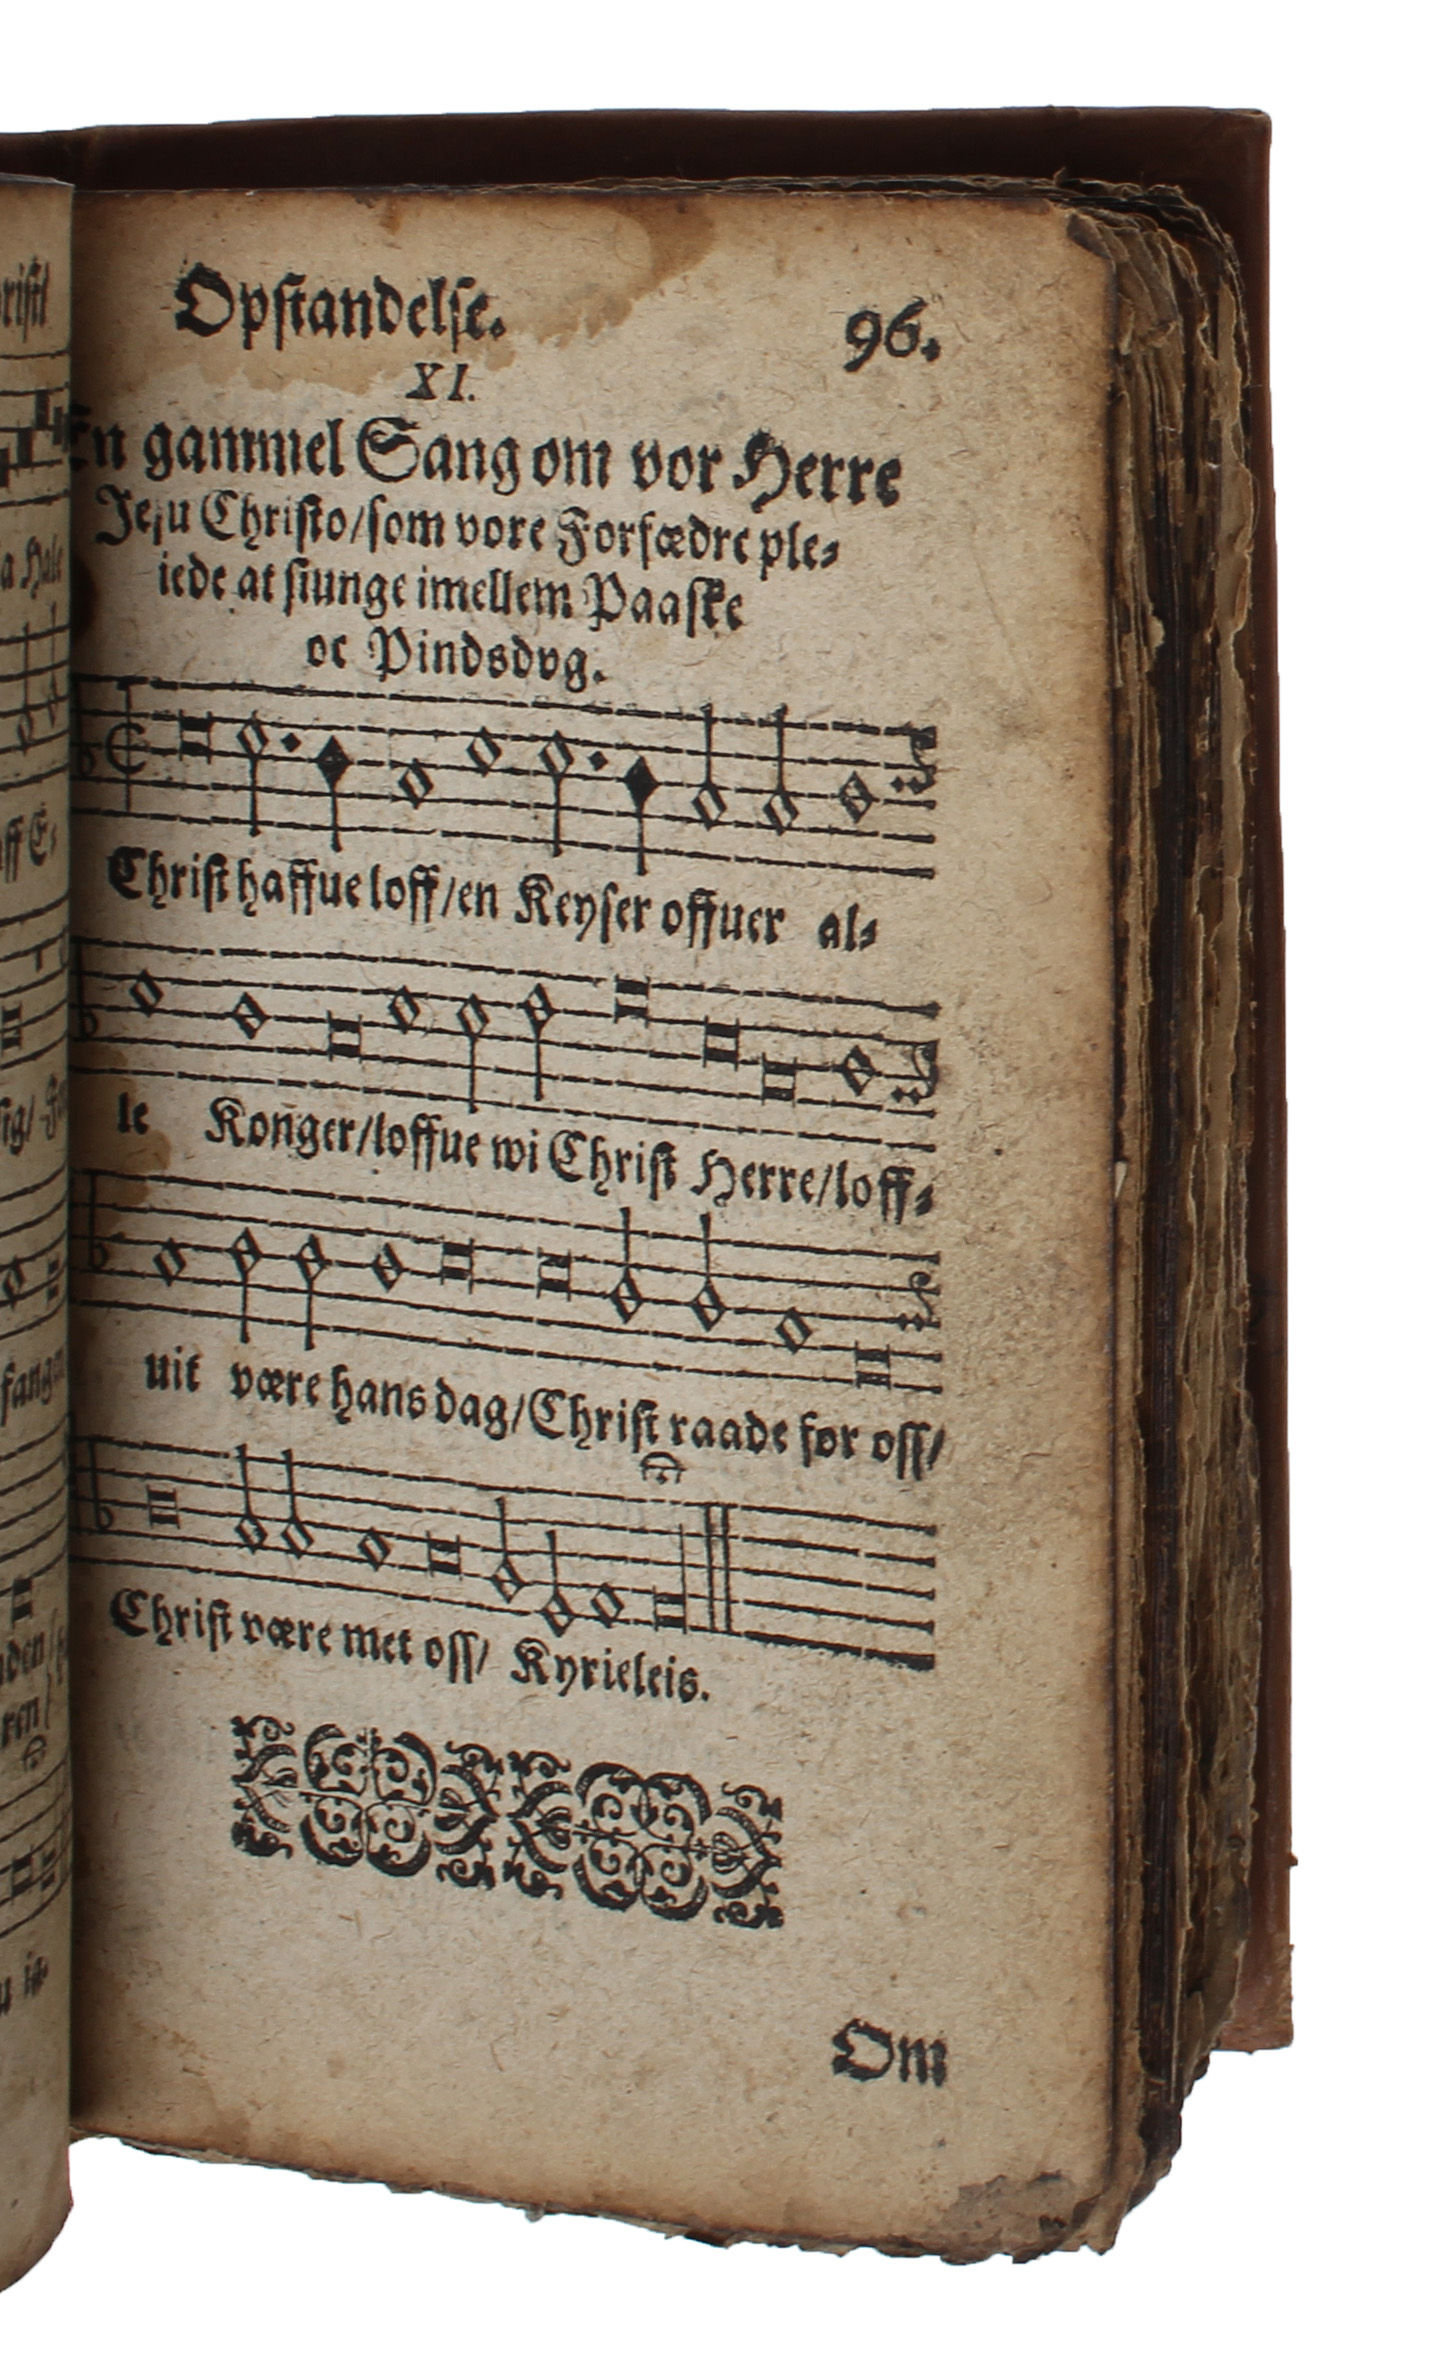 Opstandelse. 96.
XI.
En gammel Sang om vor Herre
Jesu Christo/som vore Forfædre ple⸗
iede at siunge imellem Paaske
oc Pindsdvg.
Christ haffue loff/en Keyser offuer al⸗
le Konger/loffue wi Christ Herre/loff⸗
uit være hans dag/Christ raade for oss/
Christ være met oss/ Kyrieleis.
Om